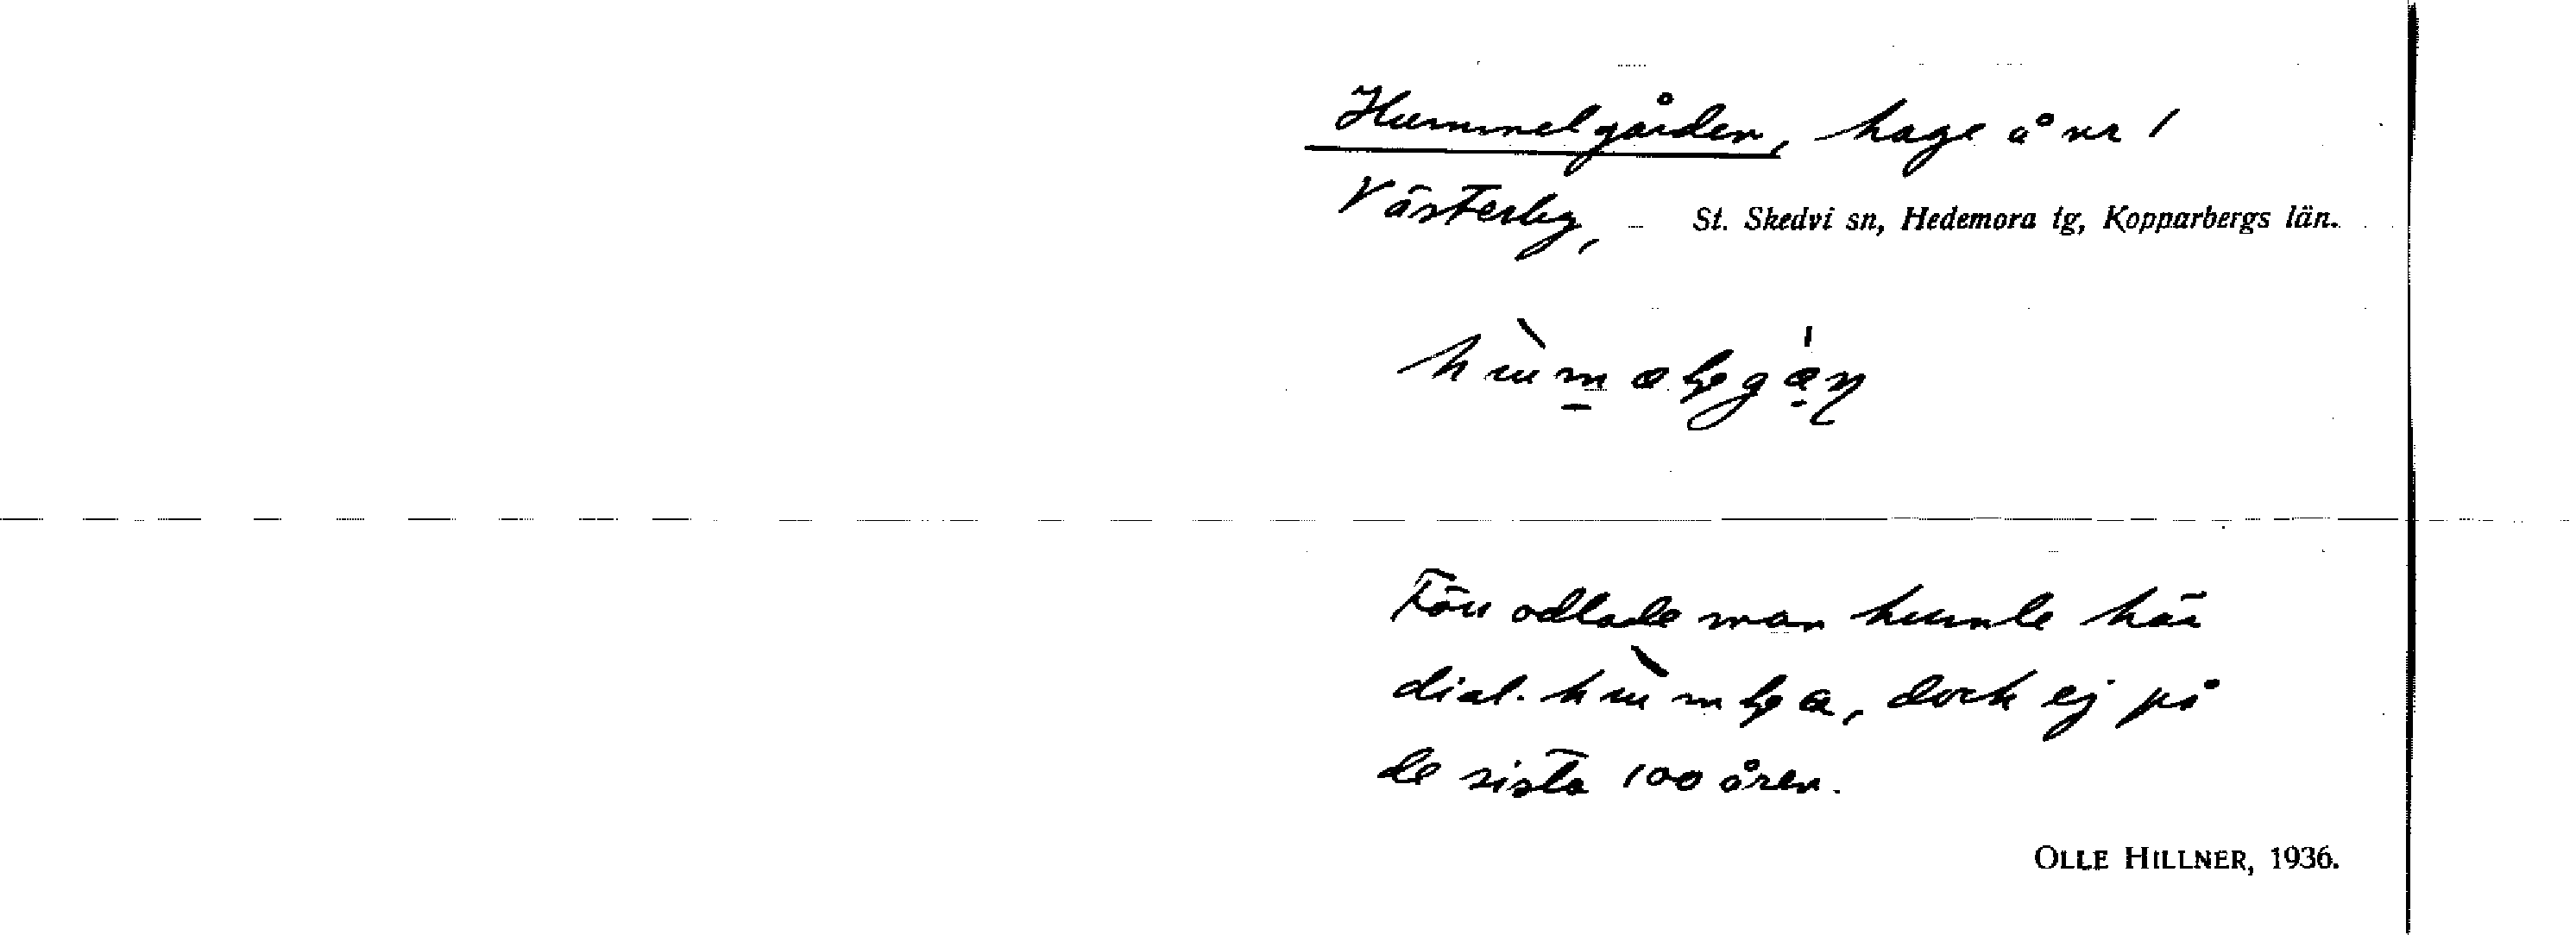 Hummelgården, hage å nr 1
Västerby, – St. Skedvi sn, Hedemora tg, Kopparbergs län.
Förr odlade man humle här
dial. , dock ej på
de sista 100 åren.
OLLE HILLNER, 1936.